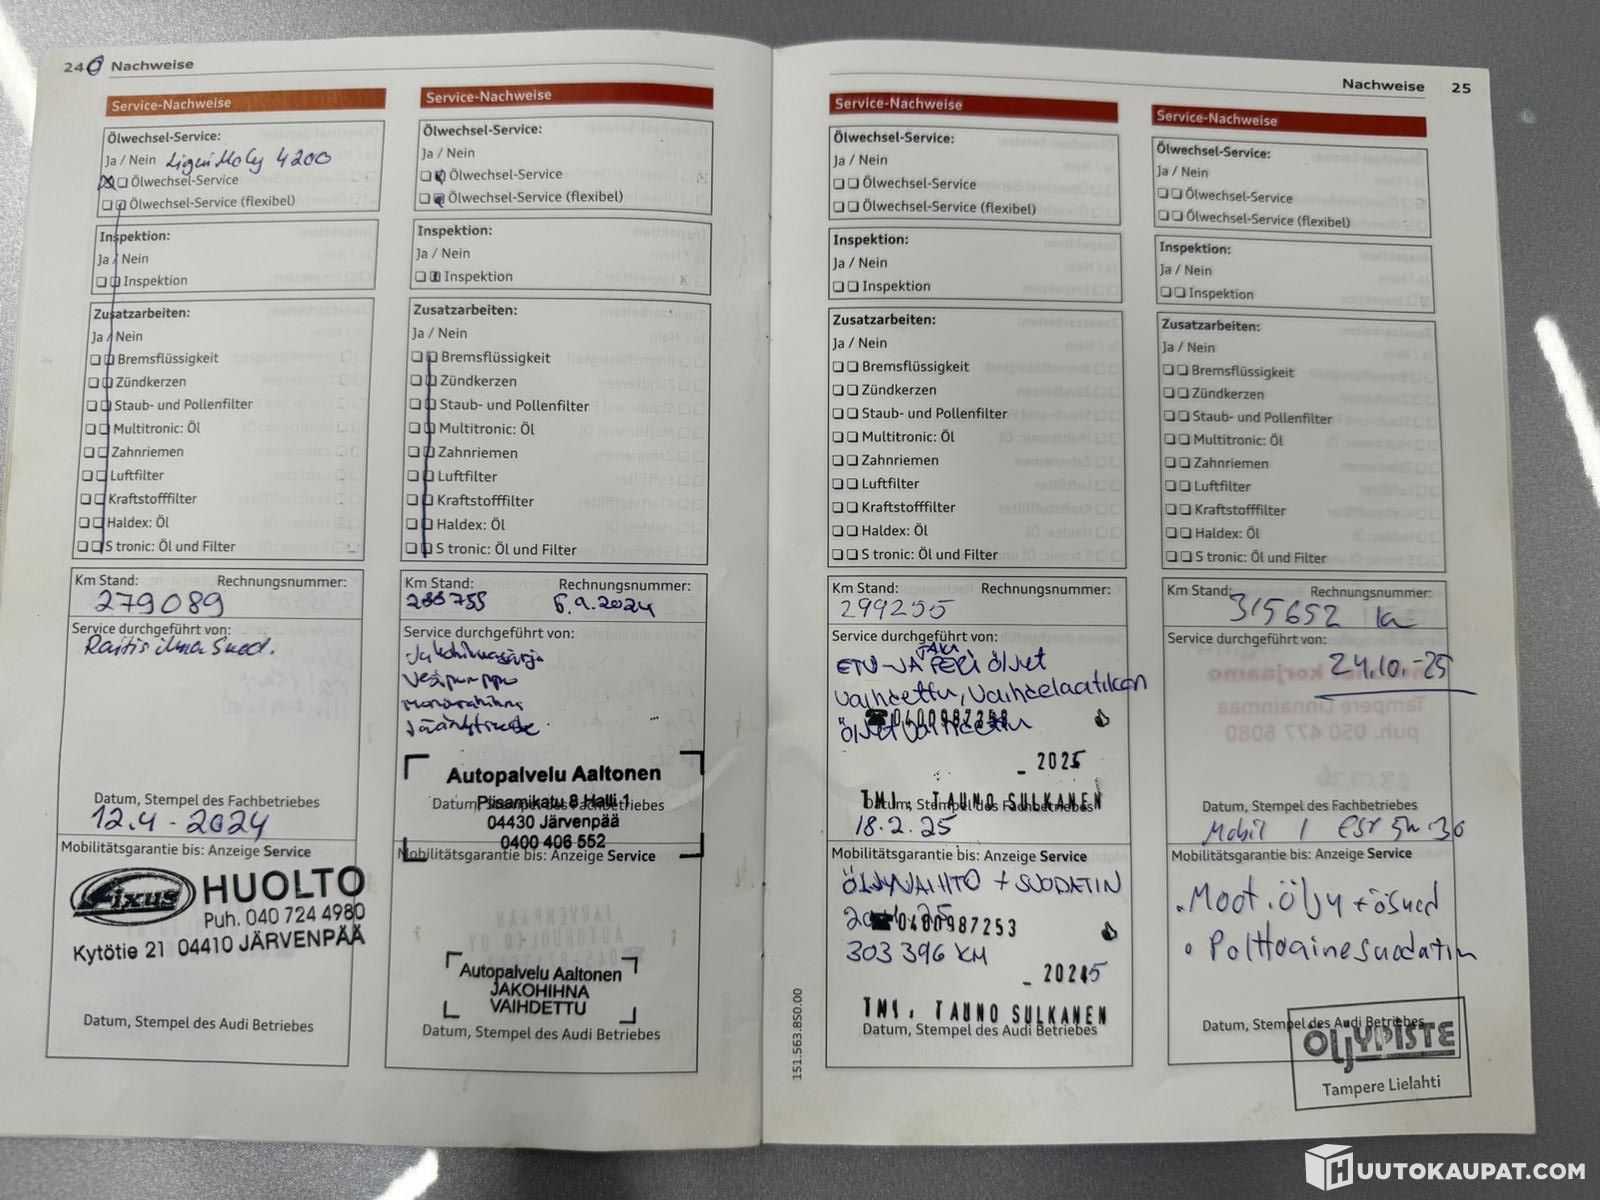 24 Nachweise
Service-Nachweise
Ölwechsel-Service:
Ja / Nein Liqui Moly 4200
Ölwechsel-Service
Ölwechsel-Service (flexibel)
Inspektion:
Ja / Nein
Inspektion
Zusatzarbeiten:
Ja / Nein
Bremsflüssigkeit
Zündkerzen
Staub- und Pollenfilter
Multitronic: Öl
Zahnriemen
Luftfilter
Kraftstofffilter
Haldex: Öl
S tronic: Öl und Filter
Km Stand: Rechnungsnummer:
279089
Service durchgeführt von:
Raitis ilma Suod.
Datum, Stempel des Fachbetriebes
12.4-2024
Mobilitätsgarantie bis: Anzeige Service
Fixus HUOLTO
Puh. 040 724 4980
Kytötie 21 04410 JÄRVENPÄÄ
Datum, Stempel des Audi Betriebes
Service-Nachweise
Ölwechsel-Service:
Ja / Nein
Ölwechsel-Service
Ölwechsel-Service (flexibel)
Inspektion:
Ja / Nein
Inspektion
Zusatzarbeiten:
Ja / Nein
Bremsflüssigkeit
Zündkerzen
Staub- und Pollenfilter
Multitronic: Öl
Zahnriemen
Luftfilter
Kraftstofffilter
Haldex: Öl
S tronic: Öl und Filter
Km Stand: Rechnungsnummer:
6.9.2024
Service durchgeführt von:
Jakohihnasarja
Vesipumppu
Autopalvelu Aaltonen
Datum, Stempel des Fachbetriebes
Piisamikatu 8 Halli 1
04430 Järvenpää
0400 406 552
Mobilitätsgarantie bis: Anzeige Service
Autopalvelu Aaltonen
JAKOHIHNA
VAIHDETTU
Datum, Stempel des Audi Betriebes
Nachweise 25
Service-Nachweise
Ölwechsel-Service:
Ja / Nein
Ölwechsel-Service
Ölwechsel-Service (flexibel)
Inspektion:
Ja / Nein
Inspektion
Zusatzarbeiten:
Ja / Nein
Bremsflüssigkeit
Zündkerzen
Staub- und Pollenfilter
Multitronic: Öl
Zahnriemen
Luftfilter
Kraftstofffilter
Haldex: Öl
S tronic: Öl und Filter
Km Stand: Rechnungsnummer:
299255
Service durchgeführt von:
ETU-JA PERÄ öljyt
vaihdettu, Vaihdelaatikon
2025
TMI. TAUNO SULKANEN
Datum, Stempel des Fachbetriebes
18.2.25
Mobilitätsgarantie bis: Anzeige Service
ÖLJYNVAIHTO + SUODATIN
0400987253
303396 KM
2025
TMI. TAUNO SULKANEN
Datum, Stempel des Audi Betriebes
151.563.850.00
Service-Nachweise
Ölwechsel-Service:
Ja / Nein
Ölwechsel-Service
Ölwechsel-Service (flexibel)
Inspektion:
Ja / Nein
Inspektion
Zusatzarbeiten:
Ja / Nein
Bremsflüssigkeit
Zündkerzen
Staub- und Pollenfilter
Multitronic: Öl
Zahnriemen
Luftfilter
Kraftstofffilter
Haldex: Öl
S tronic: Öl und Filter
Km Stand: Rechnungsnummer:
315652 km
Service durchgeführt von:
24.10.-25
Datum, Stempel des Fachbetriebes
Mobil 1 ESP 5W-30
Mobilitätsgarantie bis: Anzeige Service
. Moot.öljy + ösuod
• Polttoainesuodatin
Datum, Stempel des Audi Betriebes
ÖLJYPISTE
Tampere Lielahti
HUUTOKAUPAT.COM